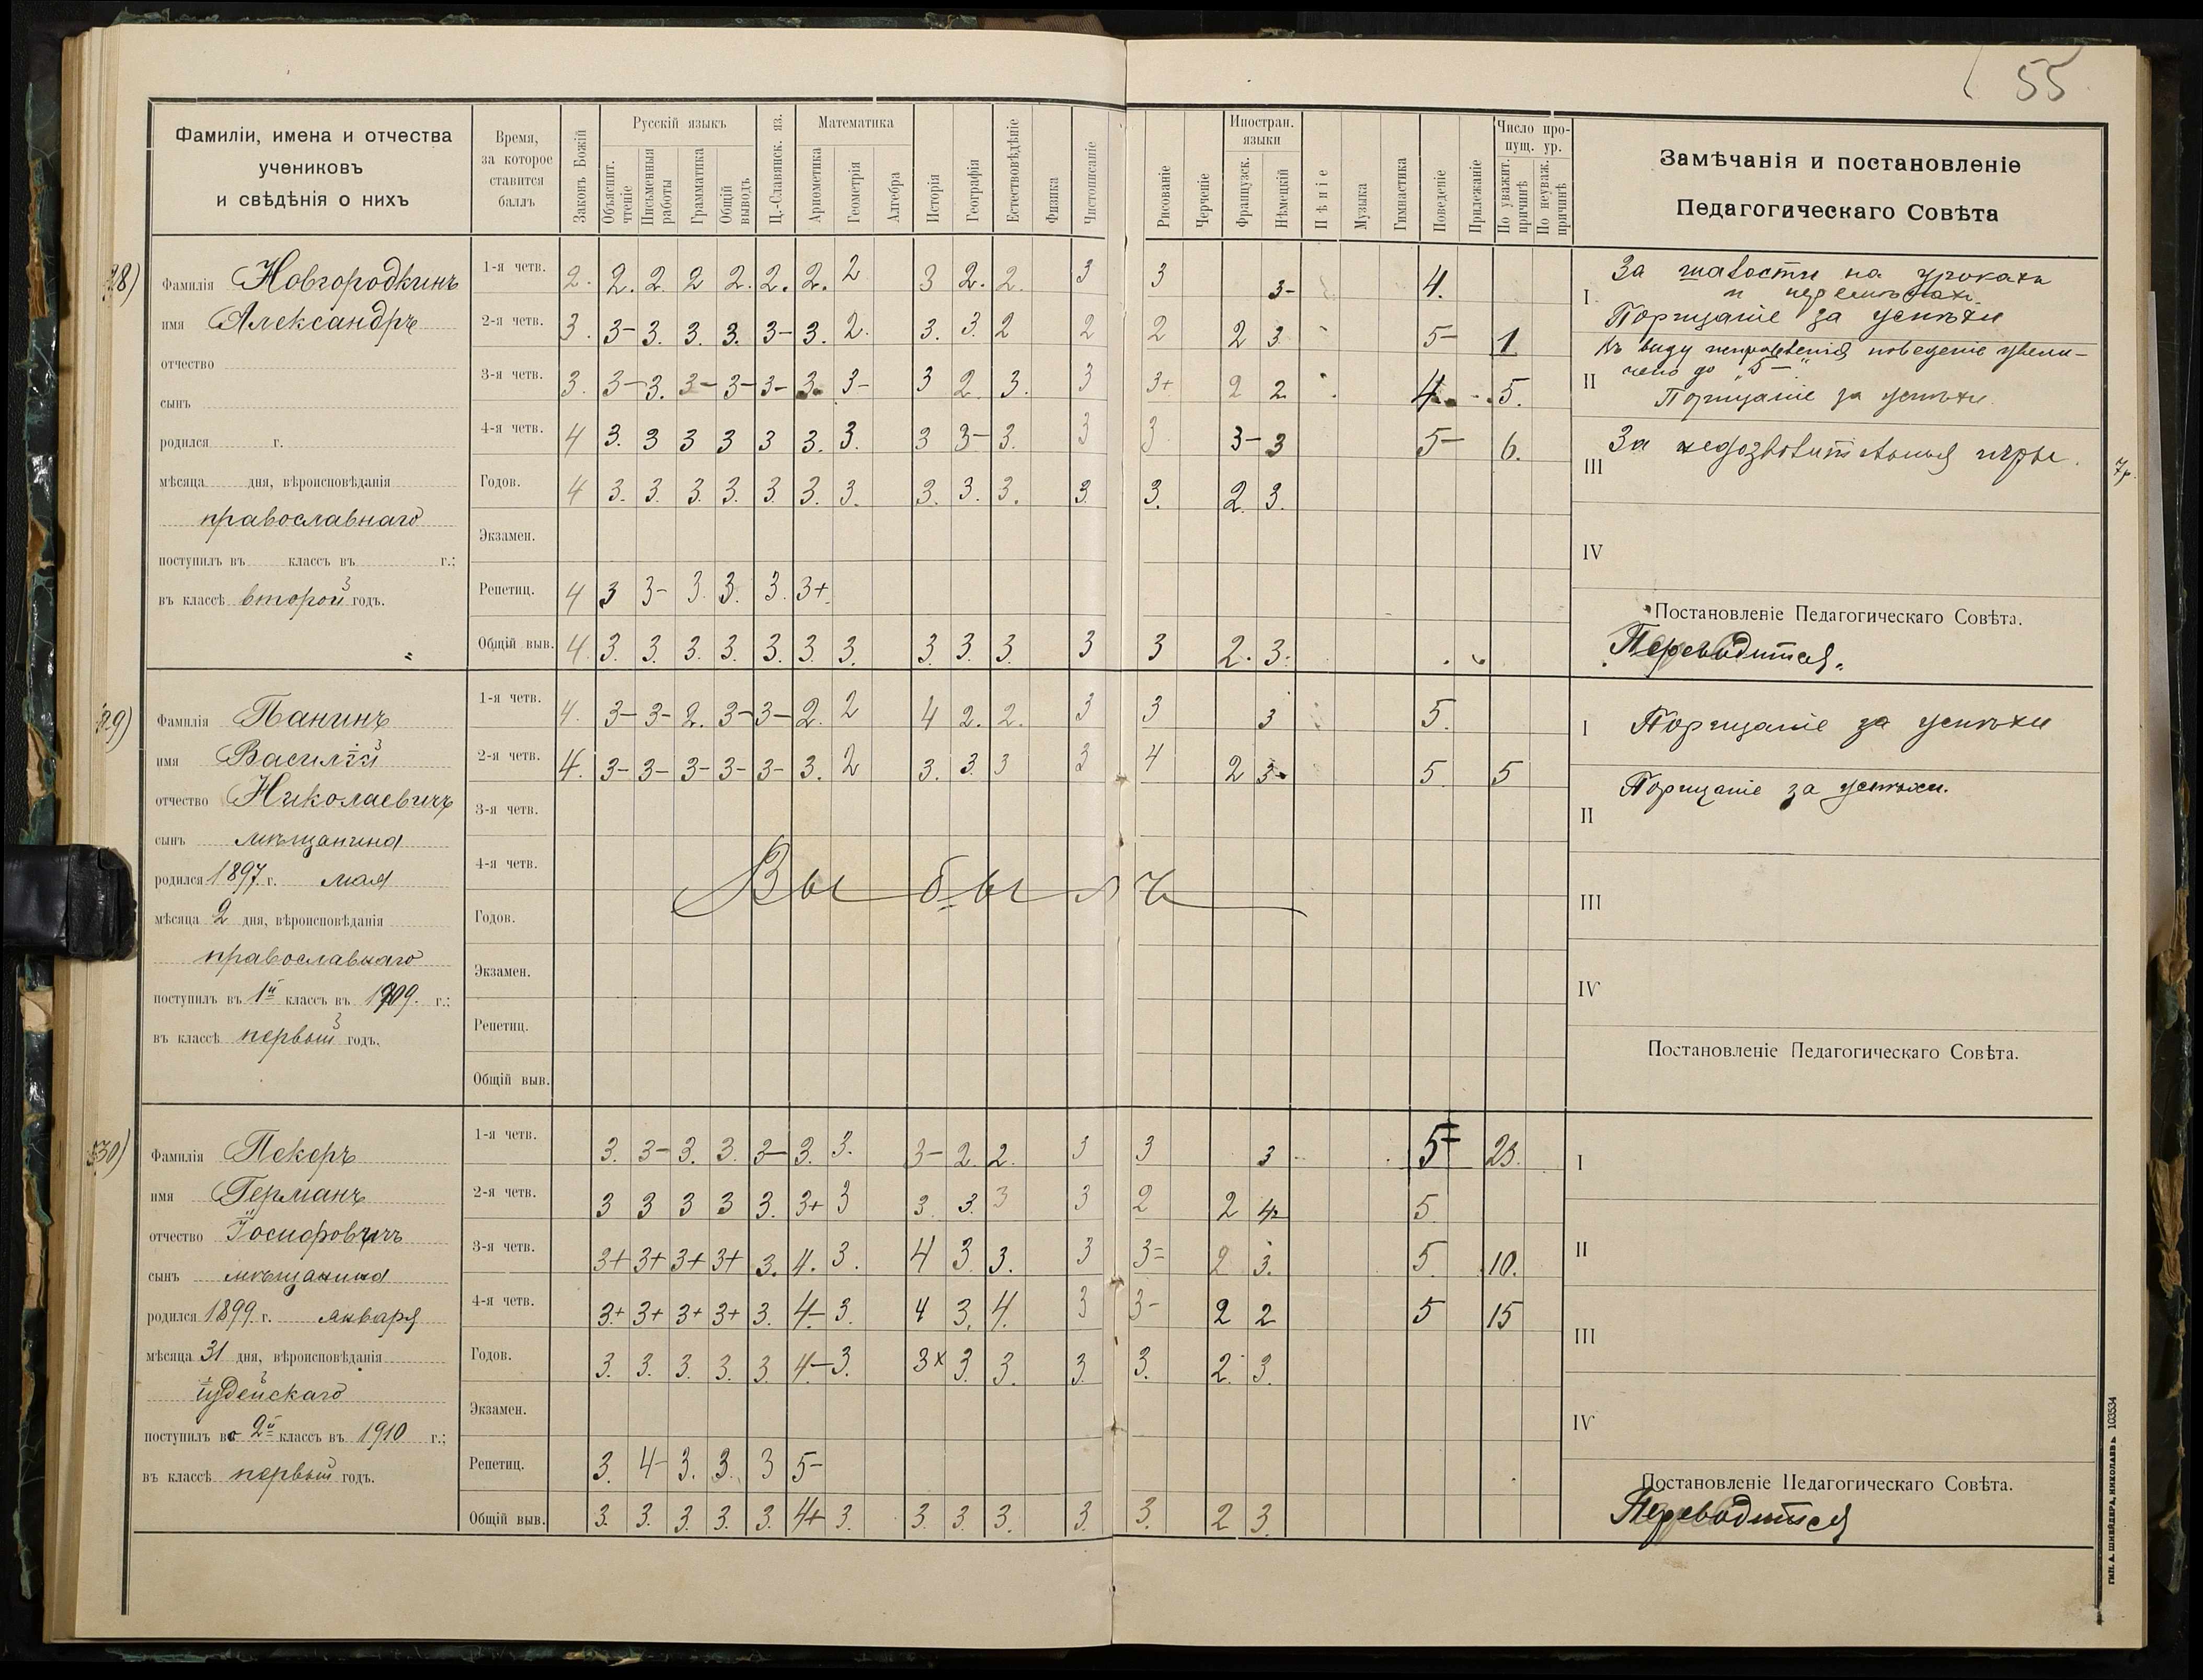 55
Фамиліи, имена и отчества
учениковъ
и свѣдѣнія о нихъ
Время,
за которое
ставится
баллъ
Законъ Божій
Русскій языкъ
Объяснит. чтеніе
Письменныя работы
Грамматика
Общій выводъ
Ц.-Славянск. яз.
Математика
Ариѳметика
Геометрія
Алгебра
Исторія
Географія
Естествовѣдѣніе
Физика
Чистописаніе
Рисованіе
Черченіе
Иностран. языки
Французск.
Нѣмецкій
Пѣніе
Музыка
Гимнастика
Поведеніе
Прилежаніе
Число пропущ. ур.
По уважит. причинѣ
По неуваж. причинѣ
Замѣчанія и постановленіе
Педагогическаго Совѣта
28)
Фамилія Новгородкинъ
имя Александръ
отчество
сынъ
родился г.
мѣсяца дня, вѣроисповѣданія
православнаго
поступилъ въ классъ въ г.:
въ классѣ второй годъ.
1-я четв. 2. 2. 2. 2 2. 2. 2. 2 3 2. 2. 3 3 3- 4.
2-я четв. 3. 3- 3. 3. 3. 3- 3. 2. 3. 3. 2 2 2 2 3 5- 1
3-я четв. 3. 3- 3. 3- 3- 3- 3. 3- 3 2. 3. 3 3+ 2 2 4. 5.
4-я четв. 4 3. 3 3 3 3 3. 3. 3 3- 3. 3 3 3- 3 5- 6.
Годов. 4 3. 3. 3. 3. 3. 3. 3. 3. 3. 3. 3. 3. 2. 3.
Экзамен.
Репетиц. 4 3 3- 3. 3. 3. 3+
Общій выв. 4. 3. 3. 3. 3. 3. 3. 3. 3. 3. 3. 3 3 2. 3.
I За шалости на урокахъ
и перемѣнахъ.
Порицаніе за успѣхи
II Въ виду исправленія поведеніе увели-
чено до „5-"
Порицаніе за успѣхи
III За недозволительныя игры.
7р.
IV
Постановленіе Педагогическаго Совѣта.
Переводится.
29)
Фамилія Панинъ
имя Василій
отчество Николаевичъ
сынъ мѣщанина
родился 1897 г. мая
мѣсяца 2 дня, вѣроисповѣданія
православнаго
поступилъ въ 1й классъ въ 1909. г.:
въ классѣ первый годъ.
1-я четв. 4. 3- 3- 2. 3- 3- 2. 2 4 2. 2. 3 3 3 5.
2-я четв. 4. 3- 3- 3- 3- 3- 3. 2 3. 3. 3 3 4 2 3- 5 5
3-я четв.
4-я четв.
Выбылъ
Годов.
Экзамен.
Репетиц.
Общій выв.
I Порицаніе за успѣхи
II Порицаніе за успѣхи.
III
IV
Постановленіе Педагогическаго Совѣта.
30)
Фамилія Пекеръ
имя Германъ
отчество Іосифовичъ
сынъ мѣщанина
родился 1899 г. января
мѣсяца 31 дня, вѣроисповѣданія
іудейскаго
поступилъ во 2й классъ въ 1910 г.:
въ классѣ первый годъ.
1-я четв. 3. 3- 3. 3. 3- 3. 3. 3- 2. 2. 3 3 3 5- 23.
2-я четв. 3 3 3 3 3. 3+ 3 3. 3. 3 3 2 2 4 5
3-я четв. 3+ 3+ 3+ 3+ 3. 4. 3. 4 3 3. 3 3= 2 3. 5 10.
4-я четв. 3+ 3+ 3+ 3+ 3. 4- 3. 4 3. 4. 3 3- 2 2 5 15
Годов. 3. 3. 3. 3. 3. 4- 3. 3x 3. 3. 3. 3. 2. 3.
Экзамен.
Репетиц. 3. 4- 3. 3. 3 5-
Общій выв. 3. 3. 3. 3. 3. 4+ 3. 3. 3. 3. 3. 3. 2 3.
I
II
III
IV
Постановленіе Педагогическаго Совѣта.
Переводится
ТИП. А. ШНЕЙДЕРА, НИКОЛАЕВЪ 103534